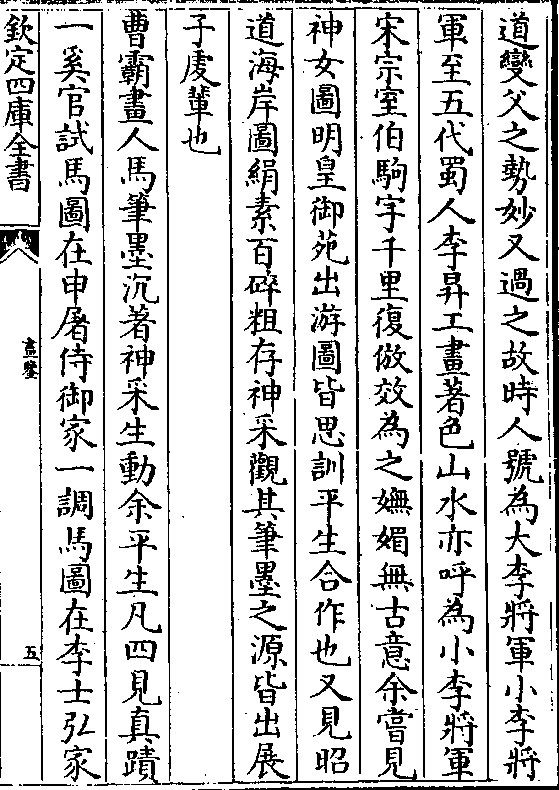 道變父之勢妙又過之故時人號為大李將軍小李將
軍至五代蜀人李昇工畫著色山水亦呼為小李將軍
宋宗室伯駒字千里復倣效為之嫵媚無古意余嘗見
神女圖明皇御苑出游圖皆思訓平生合作也又見昭
道海岸圖絹素百碎粗存神采觀其筆墨之源皆出展
子虔輩也
曹霸畫人馬筆墨沉著神采生動余平生凡四見真蹟
一奚官試馬圖在申屠侍御家一調馬圖在李士弘家
欽定四庫全書
畫鑒
五